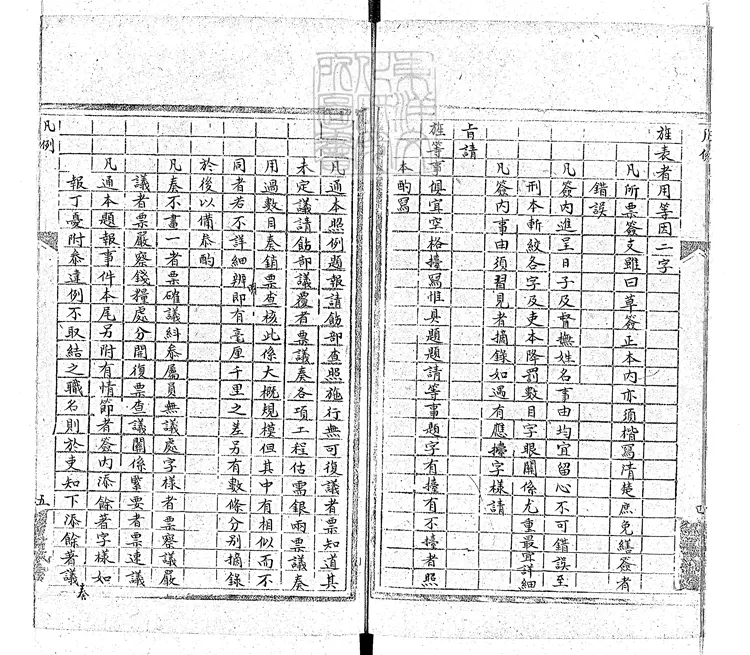 旌表者用等因二字
凡所票簽文雖曰草簽正本内亦須楷寫清楚庶免繕簽者
錯誤
凡簽内進呈日子及督撫姓名事由均宜留心不可錯誤至
刑本斬絞各字及吏本降罰數目字眼關係尤重最宜詳細
凡簽内事由須習見者摘錄如遇有應擡字樣請
旨請
旌等事俱宜空格擡寫惟具題題請等事題字有擡有不擡者照
本酌寫
凡通本照例題報請飭部查照施行無可復議者票知道其
未定議請飭部議覆者票議奏各項工程估需銀兩票議奏
用過數目奏銷票查核此係大概規模但其中有相似而不
同者若不詳細辨明即有毫厘千里之差另有數條分别摘錄
於後以備叅酌
凡奏不畫一者票確議糾叅屬員無議處字樣者票察議嚴
議者票嚴察錢糧處分開復票查議關係緊要者票速議
凡通本題報事件本尾另附有情節者簽内添餘著字樣如
報丁憂附叅違例不取結之職名則於吏知下添餘著議奏
凡例
五